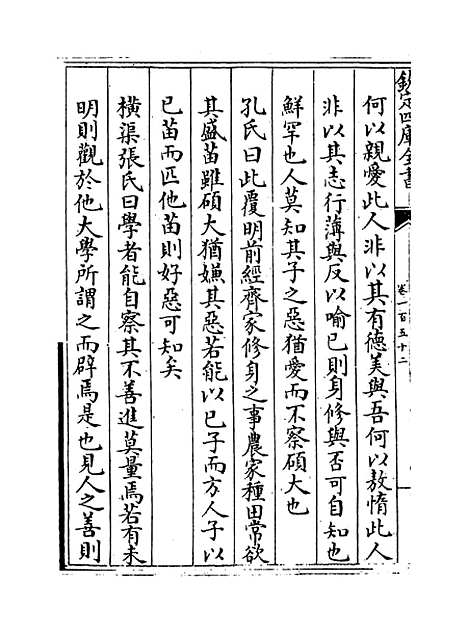 欽定四庫全書
卷一百五十二
何以親愛此人非以其有德美與吾何以敖惰此人
非以其志行薄與反以喻己則身修與否可自知也
鮮罕也人莫知其子之惡猶愛而不察碩大也
孔氏曰此覆明前經齊家修身之事農家種田常欲
其盛苗雖碩大猶嫌其惡若能以已子而方人子以
已苗而匹他苗則好惡可知矣
橫渠張氏曰學者能自察其不善進莫量焉若有未
明則觀於他大學所謂之而辟焉是也見人之善則